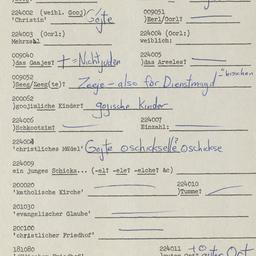 224002 (weibl. Gooj)
'Christin' Gojte
009051
)Eerl/Oorl?
224003 (Oorl:)
Mehrzahl
224004 (Oorl:)
weiblich:
009040
)das Gaajes? + = Nichtjuden
224005
)das Areles?
009052
)Seeg/Zeeg(te)? Zeeje - also für Dienstmagd
200052
gojimliche Kinder? gojische Kinder
224006
)Schkootzim?
224007
Einzahl:
224008
'christliches Mädel' Gojte
224009
ein junges Schicks... (-el? -ele? -elche? &c)
200020
'katholische Kirche'
224010
)Tumme?
201030
'evangelischer Glaube'
200100
'christlicher Friedhof'
181080
224011